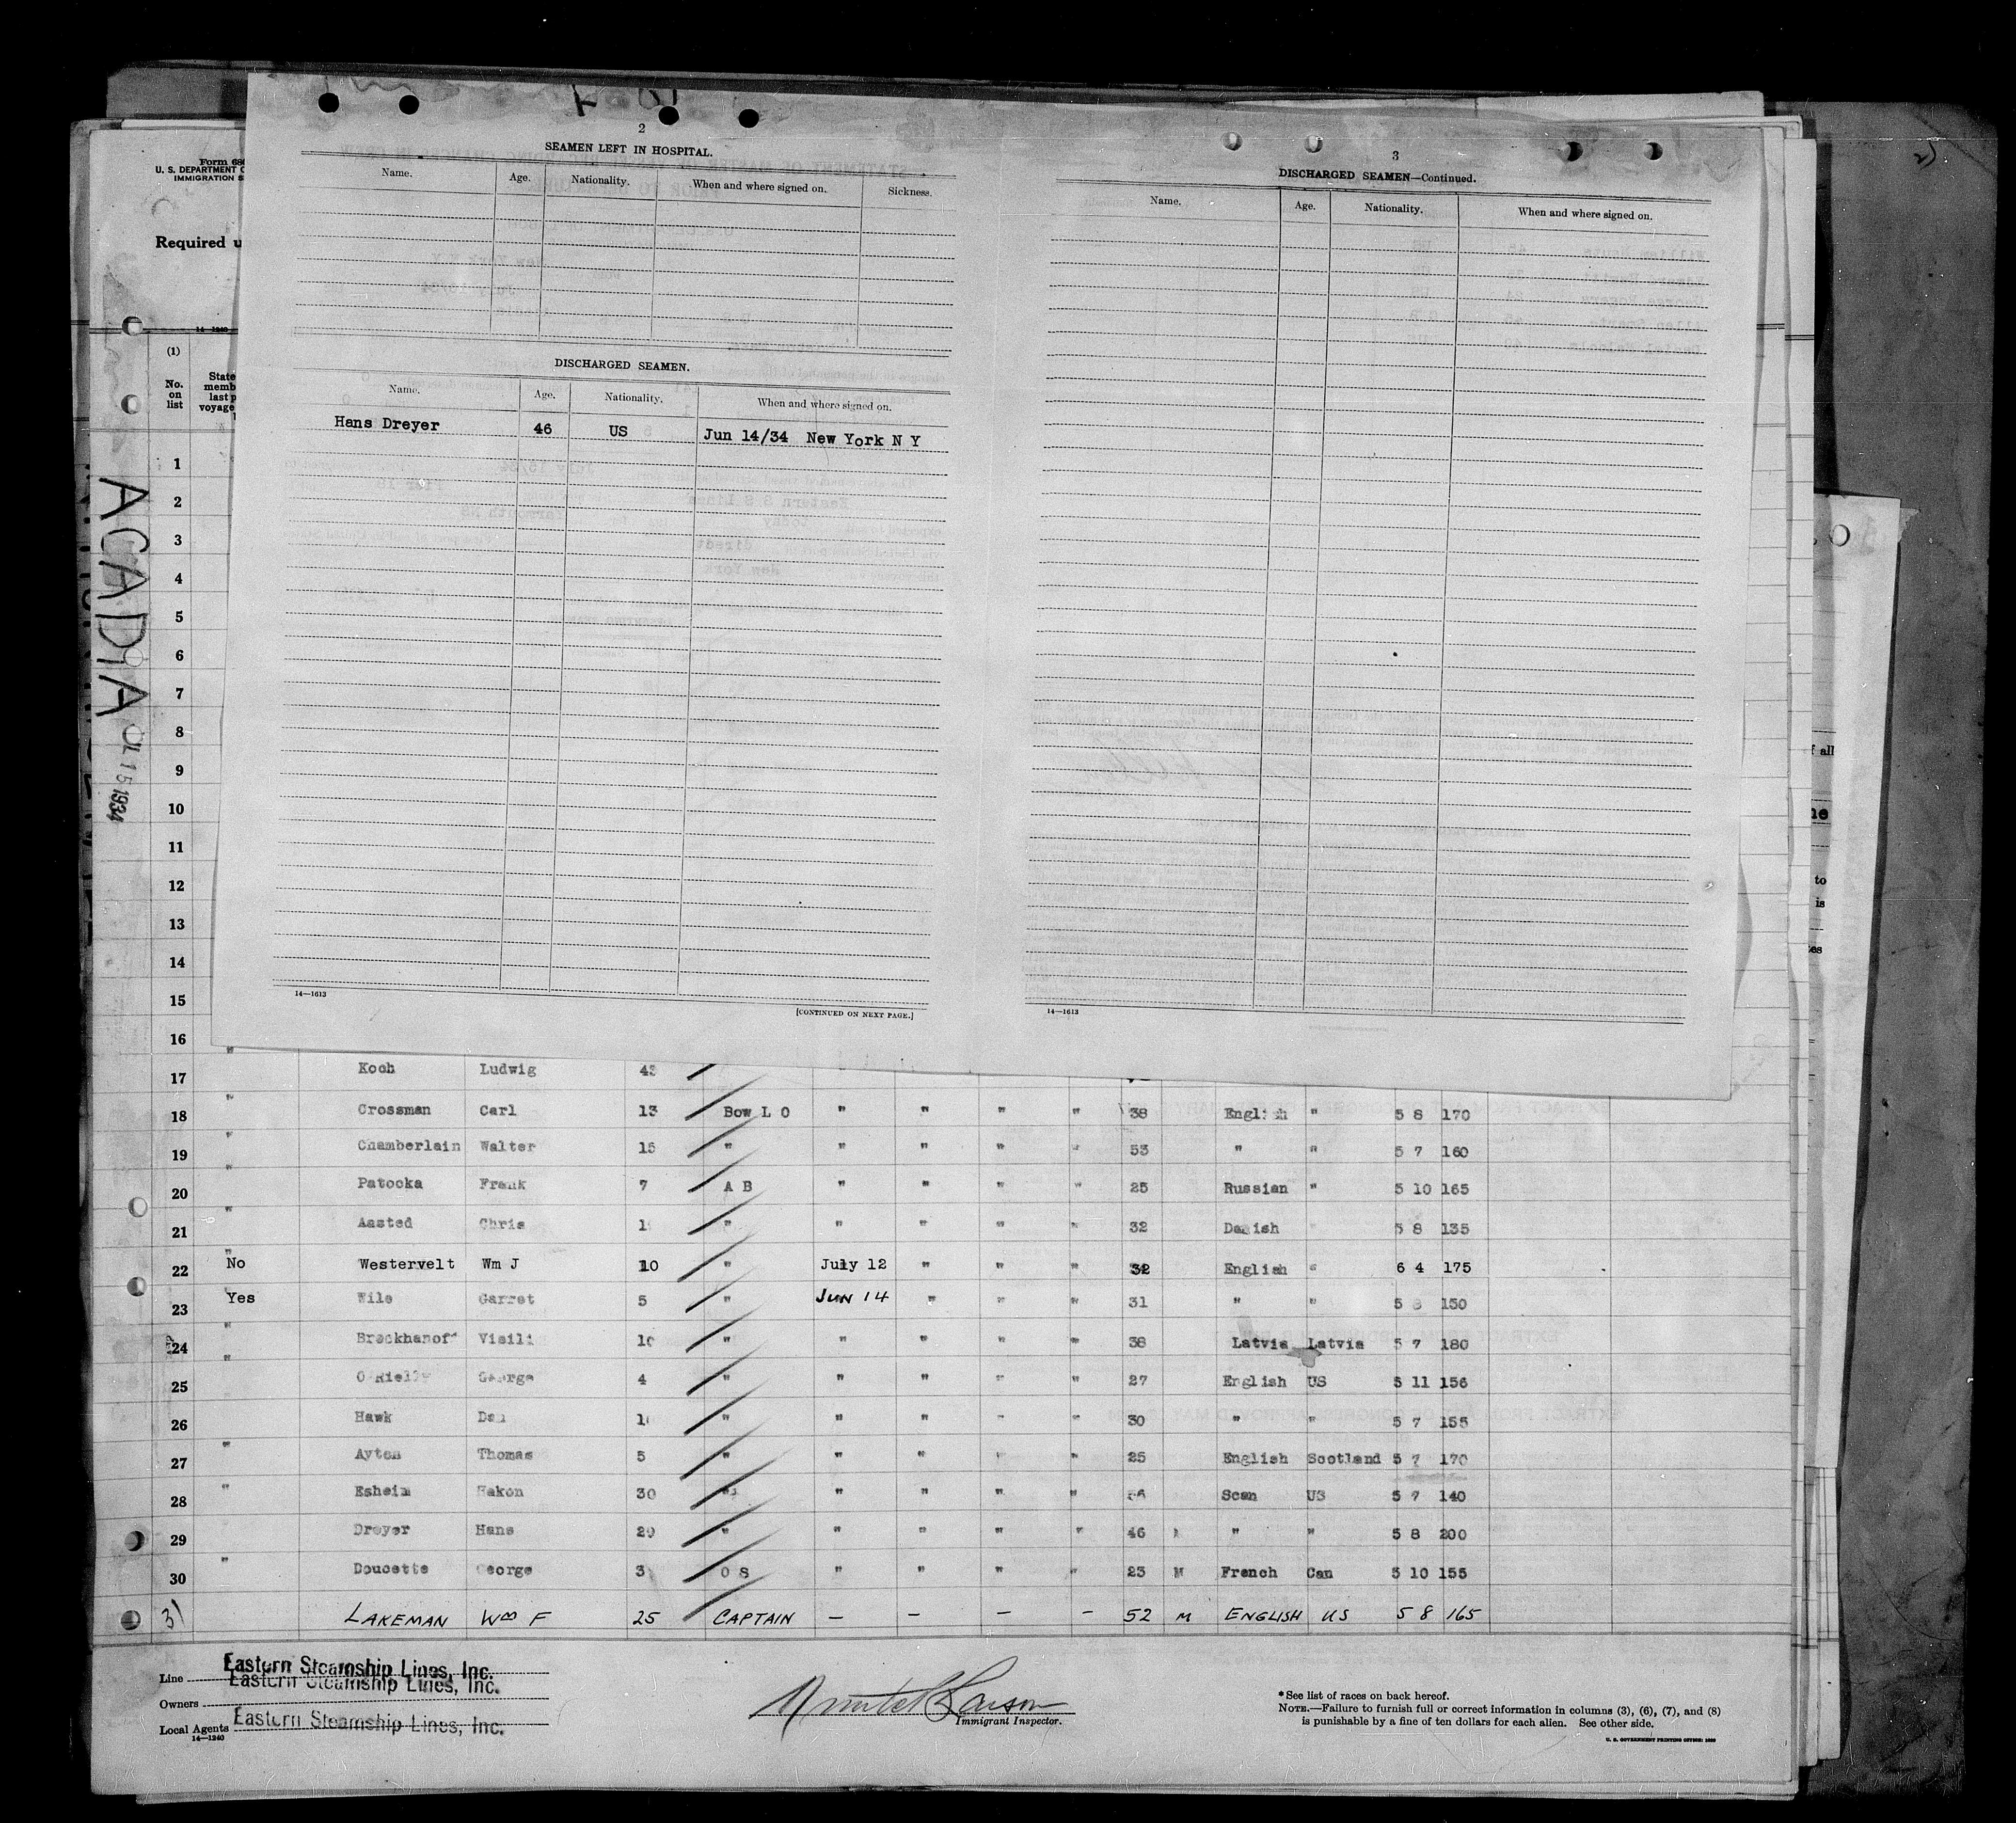 2
SEAMEN LEFT IN HOSPITAL.
Name. Age. Nationality. When and where signed on. Sickness.
DISCHARGED SEAMEN.
Name. Age. Nationality. When and where signed on.
Hans Dreyer 46 US Jun 14/34 New York N Y
14—1613
[CONTINUED ON NEXT PAGE.]
3
DISCHARGED SEAMEN—Continued.
Name. Age. Nationality. When and where signed on.
14—1613
Form 68
U. S. DEPARTMENT
IMMIGRATION S
Required u
14—1240
(1)
No. on list
State
memb
last p
voyage
ACADIA
15 1934
1
2
3
4
5
6
7
8
9
10
11
12
13
14
15
16
17 " Koch Ludwig
18 " Crossman Carl 13 Bow L O " " " " 38 English " 5 8 170
19 " Chamberlain Walter 15 " " " " " 53 " " 5 7 160
20 " Patocka Frank 7 A B " " " " 25 Russian " 5 10 165
21 " Aasted Chris " " " " " 32 Danish " 5 8 135
22 No Westervelt Wm J 10 " July 12 " " " 32 English " 6 4 175
23 Yes Wile Garret 5 " JUN 14 " " " 31 " " 5 8 150
24 " Visili " " " " " 38 Latvia Latvia 5 7 180
25 " George 4 " " " " " 27 English US 5 11 156
26 Hawk Dan " " " " " 30 " " 5 7 155
27 " Ayten Thomas 5 " " " " " 25 English Scotland 5 7 170
28 " Esheim Hakon 30 " " " " " Scan US 5 7 140
29 Dreyer Hans 29 " " " " " 46 " " 5 8 200
30 " Doucette George 3 O S " " " " 23 M French Can 5 10 155
31 LAKEMAN Wm F 25 CAPTAIN — — — — 52 M ENGLISH US 5 8 165
Line Eastern Steamship Lines, Inc.
Eastern Steamship Lines, Inc.
Owners
Local Agents Eastern Steamship Lines, Inc.
14—1240
Larson
Immigrant Inspector.
*See list of races on back hereof.
NOTE.—Failure to furnish full or correct information in columns (3), (6), (7), and (8)
is punishable by a fine of ten dollars for each alien. See other side.
f all
ne
to
is
tes